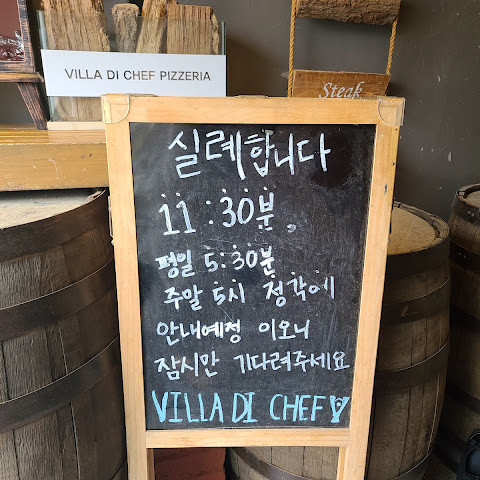 VILLA DI CHEF PIZZERIA
Steak
실례합니다
11:30분,
평일 5:30분
주말 5시 정각에
안내예정 이오니
잠시만 기다려주세요
VILLA DI CHEF